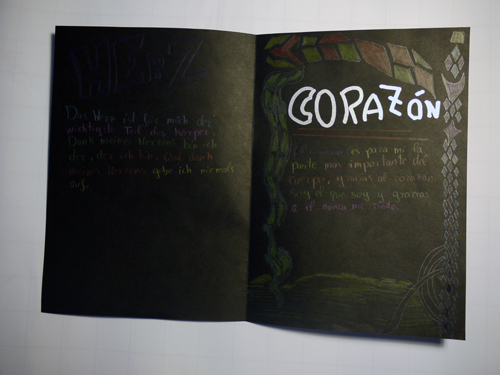 HERZ
Das Herz ist für mich der
wichtigste Teil des Körper.
Dank meines Herzens bin ich
der, der ich bin. Und dank
meines Herzens gebe ich niemals
auf.
CORAZÓN
El corazón es para mi la
parte mas importante del
cuerpo, gracias al corazon
soy el que soy y gracias
a el nunca me rindo.